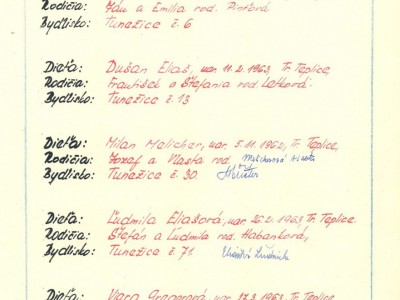 Rodičia: Ján a Emília rod.
Bydlisko: Tunežice č. 6
Dieťa: Dušan Eliaš, nar. 11. 2. 1963, Tr. Teplice,
Rodičia: František a Štefania rod. Letková.
Bydlisko: Tunežice č. 13
Dieťa: Milan Melicher, nar. 5. 11. 1962, Tr. Teplice,
Rodičia: Jozef a Vlasta rod.
Bydlisko: Tunežice č. 30
Dieťa: Ľudmila Eliašová, nar. 26. 2. 1963 Tr. Teplice.
Rodičia: Štefán a Ľudmila rod. Habánková,
Bydlisko: Tunežice č. 71.
Dieťa: Viera Gregorová nar. 17. 3. 1963, Tr. Teplice